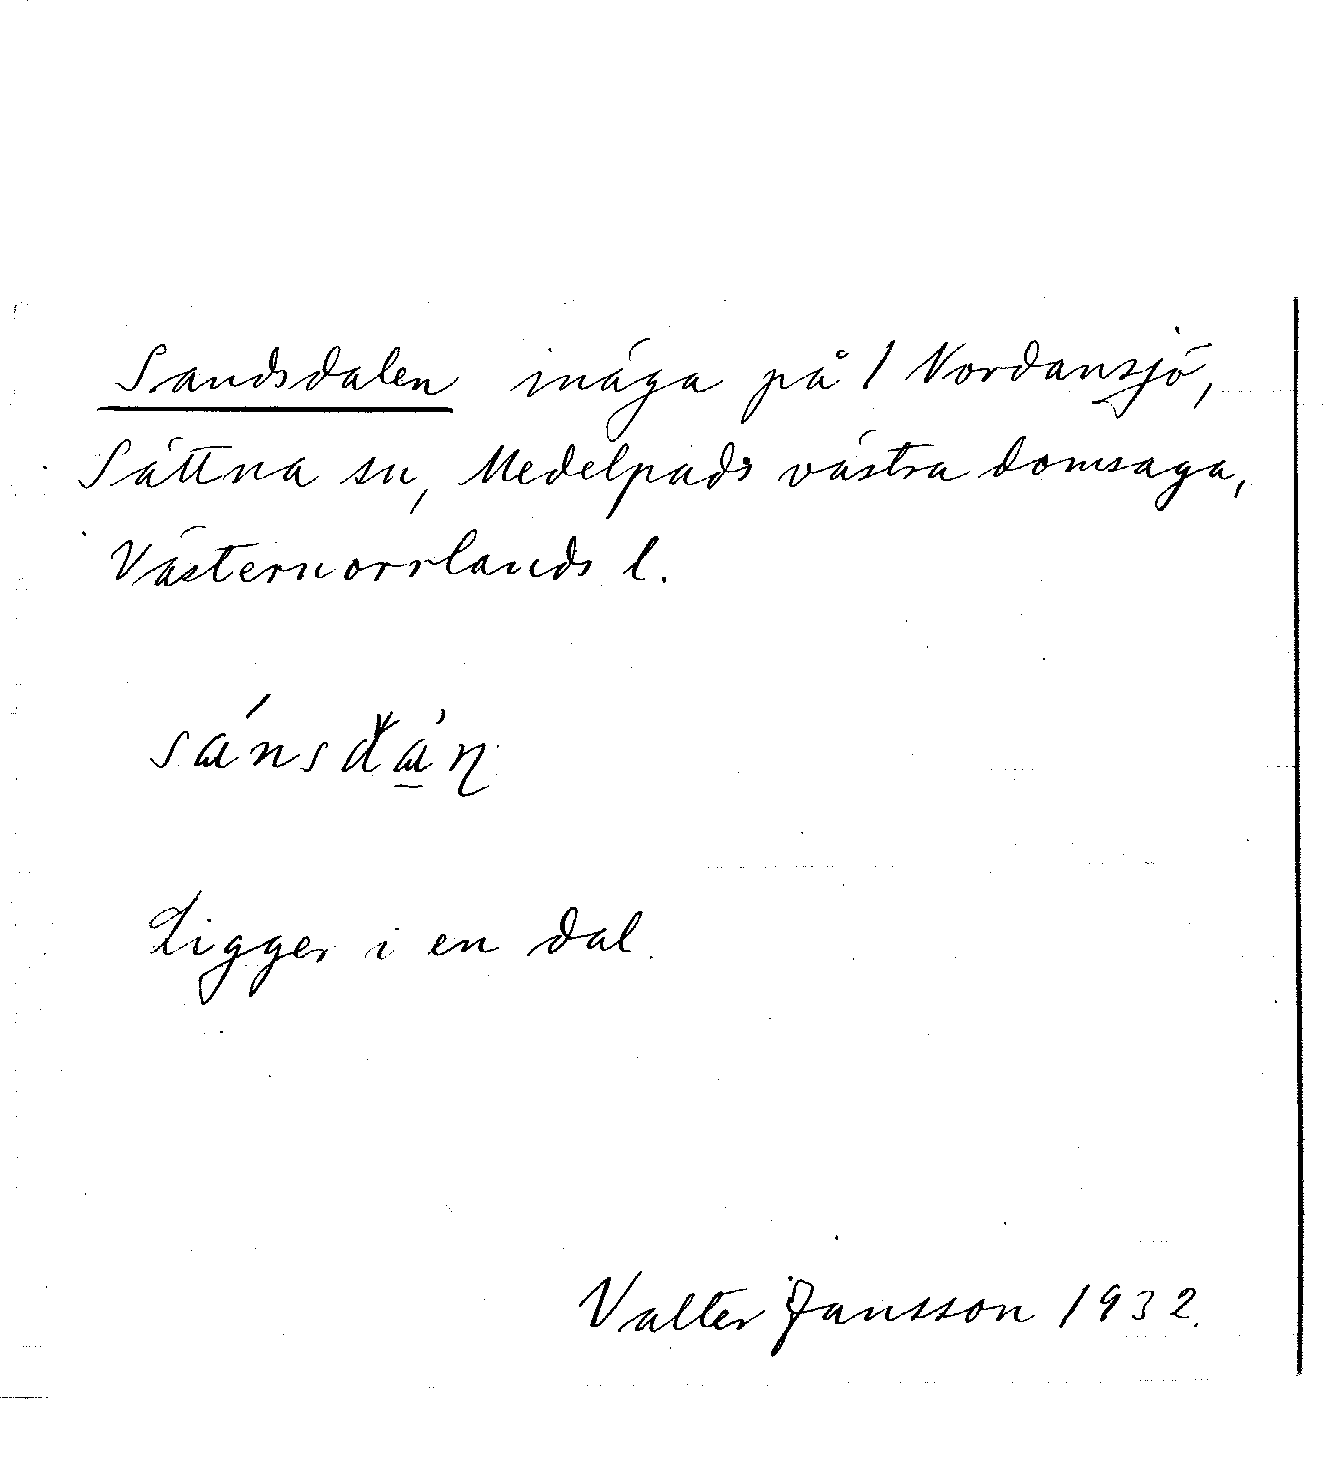 Sandsdalen inäga på 1 Nordansjö,
Sättna sn, Medelpads västra domsaga,
Västernorrlands l.
sánsdàṇ
Ligger i en dal.
Valter Jansson 1932.